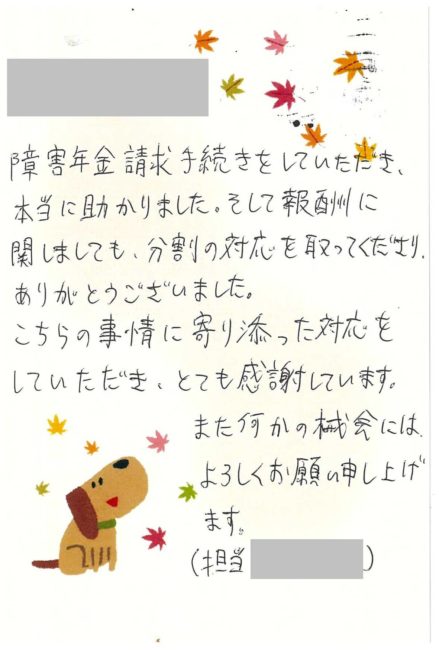 障害年金請求手続きをしていただき、
本当に助かりました。そして報酬に
関しましても、分割の対応を取ってくださり、
ありがとうございました。
こちらの事情に寄り添った対応を
していただき、とても感謝しています。
また何かの機会には、
よろしくお願い申し上げ
ます。
(担当 )